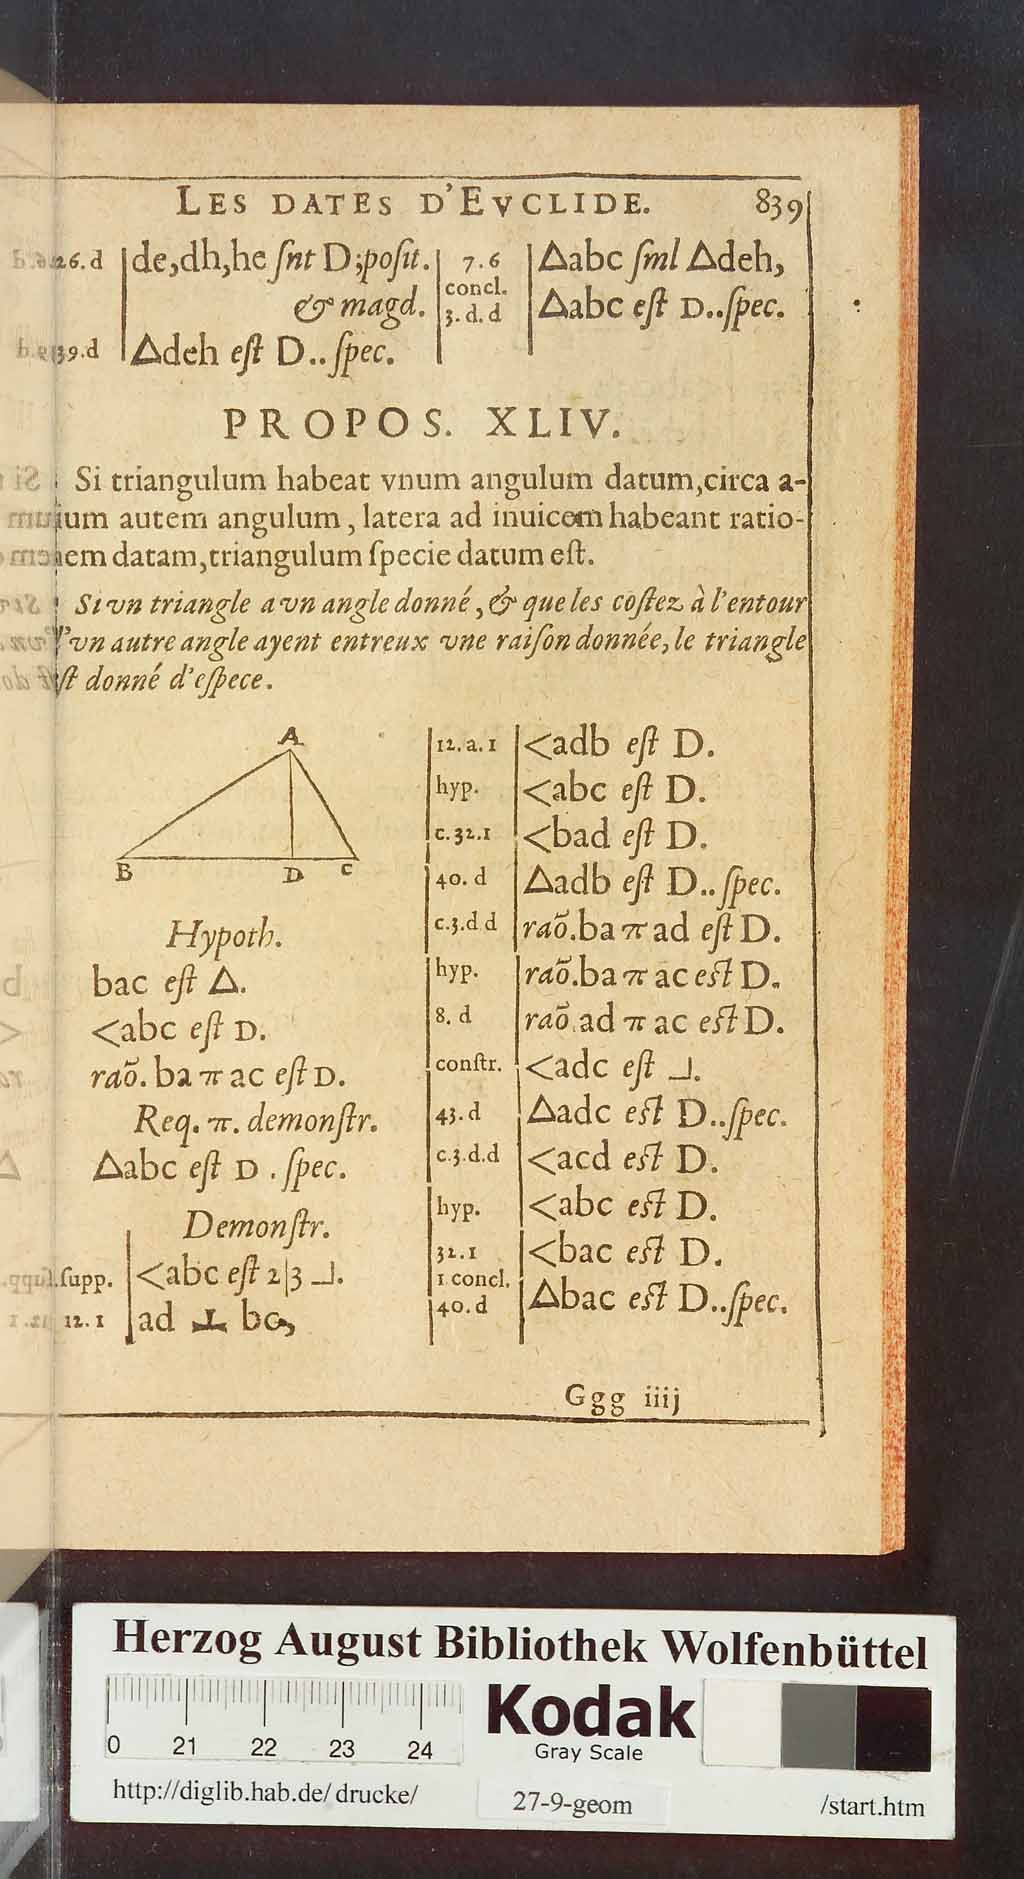 LES DATES D'EVCLIDE. 839
26.d de,dh,he ſnt D;poſit.
& magd.
39.d △deh eſt D..ſpec.
7.6 △abc ſml △deh,
concl.
3.d.d △abc eſt D..ſpec.
PROPOS. XLIV.
Si triangulum habeat vnum angulum datum,circa a-
ium autem angulum, latera ad inuicem habeant ratio-
em datam,triangulum ſpecie datum eſt.
Si vn triangle a vn angle donné, & que les coſtez à l'entour
'vn autre angle ayent entreux vne raiſon donnée, le triangle
ſt donné d'eſpece.
A
B D C
Hypoth.
bac eſt △.
<abc eſt D.
raõ. ba π ac eſt D.
Req. π. demonſtr.
△abc eſt D. ſpec.
Demonſtr.
ſupp. <abc eſt 2|3 ⅃.
12.1 ad ⊥ bc,
12.a.1 <adb eſt D.
hyp. <abc eſt D.
c.32.1 <bad eſt D.
40.d △adb eſt D..ſpec.
c.3.d.d raõ.ba π ad eſt D.
hyp. raõ.ba π ac eſt D.
8.d raõ.ad π ac eſt D.
conſtr. <adc eſt ⅃.
43.d △adc eſt D..ſpec.
c.3.d.d <acd eſt D.
hyp. <abc eſt D.
32.1 <bac eſt D.
1.concl.
40.d △bac eſt D..ſpec.
Ggg iiij
Herzog August Bibliothek Wolfenbüttel
0 21 22 23 24
Kodak
Gray Scale
http://diglib.hab.de/drucke/ 27-9-geom /start.htm